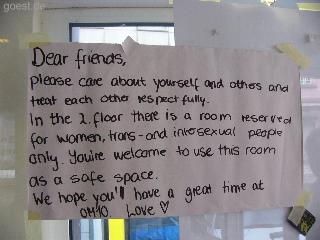 goest.de
Dear friends,
please care about yourself and others and
treat each other respectfully.
In the 2.floor there is a room reserved
for women, trans- and intersexual people
only. You're welcome to use this room
as a safe space.
We hope you'll have a great time at
OM10. Love ♡